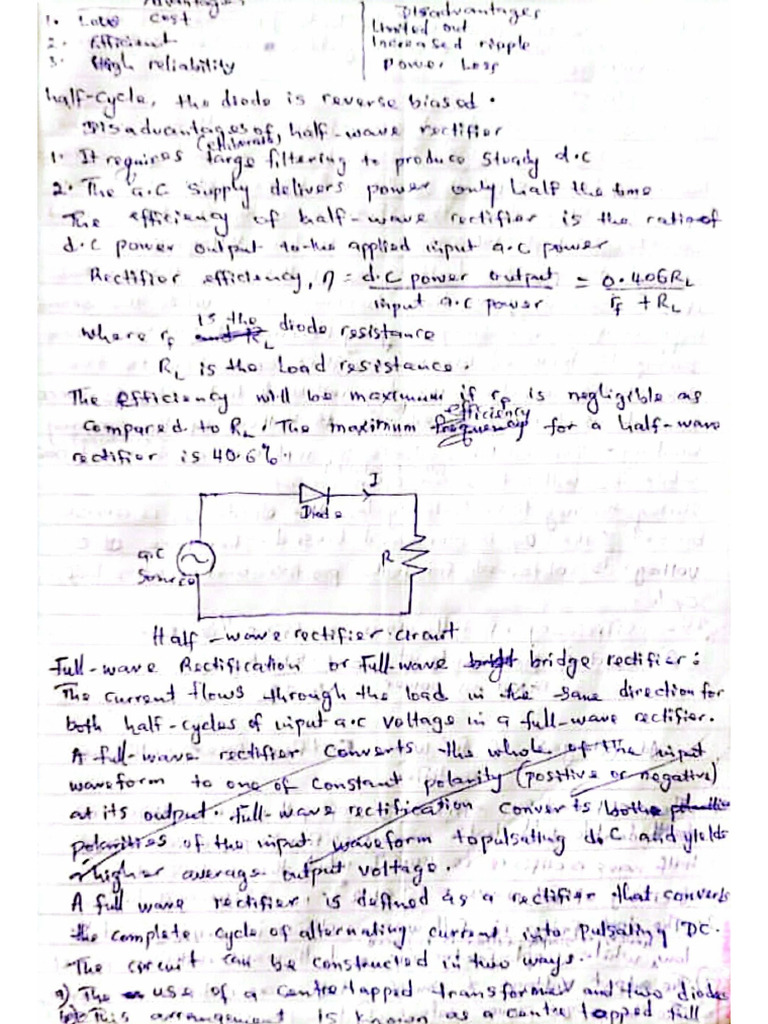 Advantages
Disadvantages
1. Low cost
Limited out
2. Efficient
Increased ripple
3. High reliability
Power Loss
half-cycle, the diode is reverse biased.
Disadvantages of half-wave rectifier
1. It requires large filtering to produce steady d.c
2. The a.c supply delivers power only half the time
The efficiency of half-wave rectifier is the ratio of
d.c power output to the applied input a.c power
Rectifier efficiency, η = d.c power output / input a.c power = 0.406RL / rf + RL
where rf is the diode resistance
RL is the Load resistance.
The efficiency will be maximum if rf is negligible as
compared to RL. The maximum efficiency for a half-wave
rectifier is 40.6%.
I
Diode
a.c
Source
R
Half-wave rectifier circuit
Full-wave Rectification or Full-wave bridge rectifier:
The current flows through the load in the same direction for
both half-cycles of input a.c voltage in a full-wave rectifier.
A full-wave rectifier converts the whole of the input
waveform to one of constant polarity (positive or negative)
at its output. Full-wave rectification converts both
polarities of the input waveform to pulsating d.c and yields
higher average output voltage.
A full wave rectifier is defined as a rectifier that converts
the complete cycle of alternating current into pulsating DC.
The circuit can be constructed in two ways.
a) The use of a centre tapped transformer and two diodes
This arrangement is known as a centre tapped full